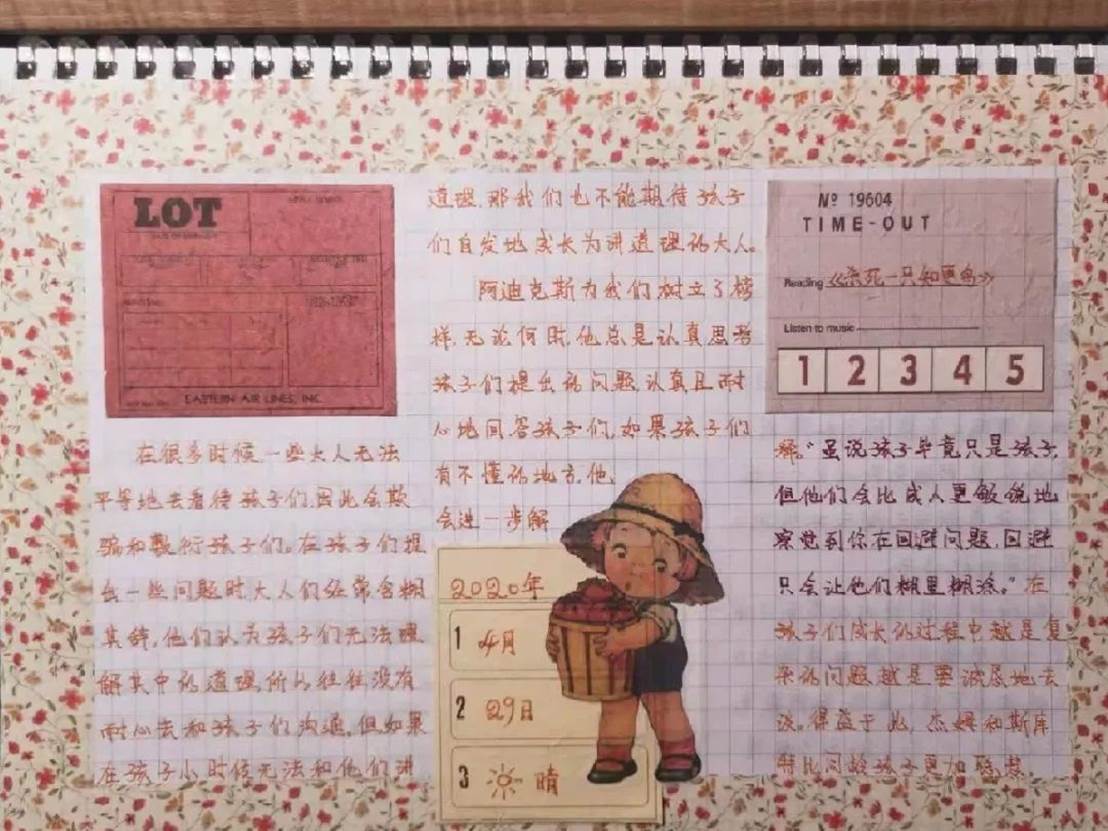 LOT
EASTERN AIR LINES, INC.
在很多时候一些大人无法
平等地去看待孩子们,因此会欺
骗和敷衍孩子们。在孩子们提
出一些问题时大人们经常含糊
其辞,他们认为孩子们无法理
解其中的道理,所以往往没有
耐心去和孩子们沟通,但如果
在孩子小时候无法和他们讲
道理,那我们也不能期待孩子
们自发地成长为讲道理的大人。
阿迪克斯为我们树立了榜
样,无论何时,他总是认真思考
孩子们提出的问题,认真且耐
心地回答孩子们,如果孩子们
有不懂的地方,他
会进一步解
2020年
1 4月
2 29日
3 晴
Nº 19604
TIME-OUT
Reading 《杀死一只知更鸟》
Listen to music
1 2 3 4 5
释。“虽说孩子毕竟只是孩子,
但他们会比成人更敏锐地
察觉到你在回避问题,回避
只会让他们糊里糊涂。”在
孩子们成长的过程中越是复
杂的问题越是要诚恳地去
谈。得益于此,杰姆和斯库
特比同龄孩子更加聪慧.